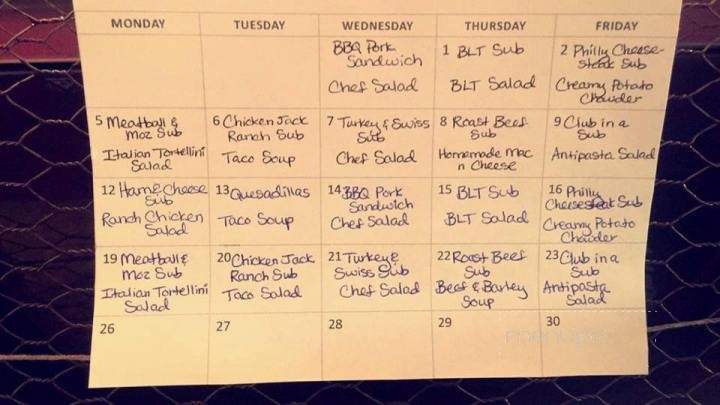 MONDAY TUESDAY WEDNESDAY THURSDAY FRIDAY
BBQ Pork
Sandwich
Chef Salad
1 BLT Sub
BLT Salad
2 Philly Cheese-
steak Sub
Creamy Potato
Chowder
5 Meatball &
Moz Sub
Italian Tortellini
Salad
6 Chicken Jack
Ranch Sub
Taco Soup
7 Turkey & Swiss
Sub
Chef Salad
8 Roast Beef
Sub
Homemade Mac
n Cheese
9 Club in a
Sub
Antipasta Salad
12 Ham & Cheese
Sub
Ranch Chicken
Salad
13 Quesadillas
Taco Soup
14 BBQ Pork
Sandwich
Chef Salad
15 BLT Sub
BLT Salad
16 Philly
Cheesesteak Sub
Creamy Potato
Chowder
19 Meatball &
Moz Sub
Italian Tortellini
Salad
20 Chicken Jack
Ranch Sub
Taco Salad
21 Turkey &
Swiss Sub
Chef Salad
22 Roast Beef
Sub
Beef & Barley
Soup
23 Club in a
Sub
Antipasta
Salad
26 27 28 29 30